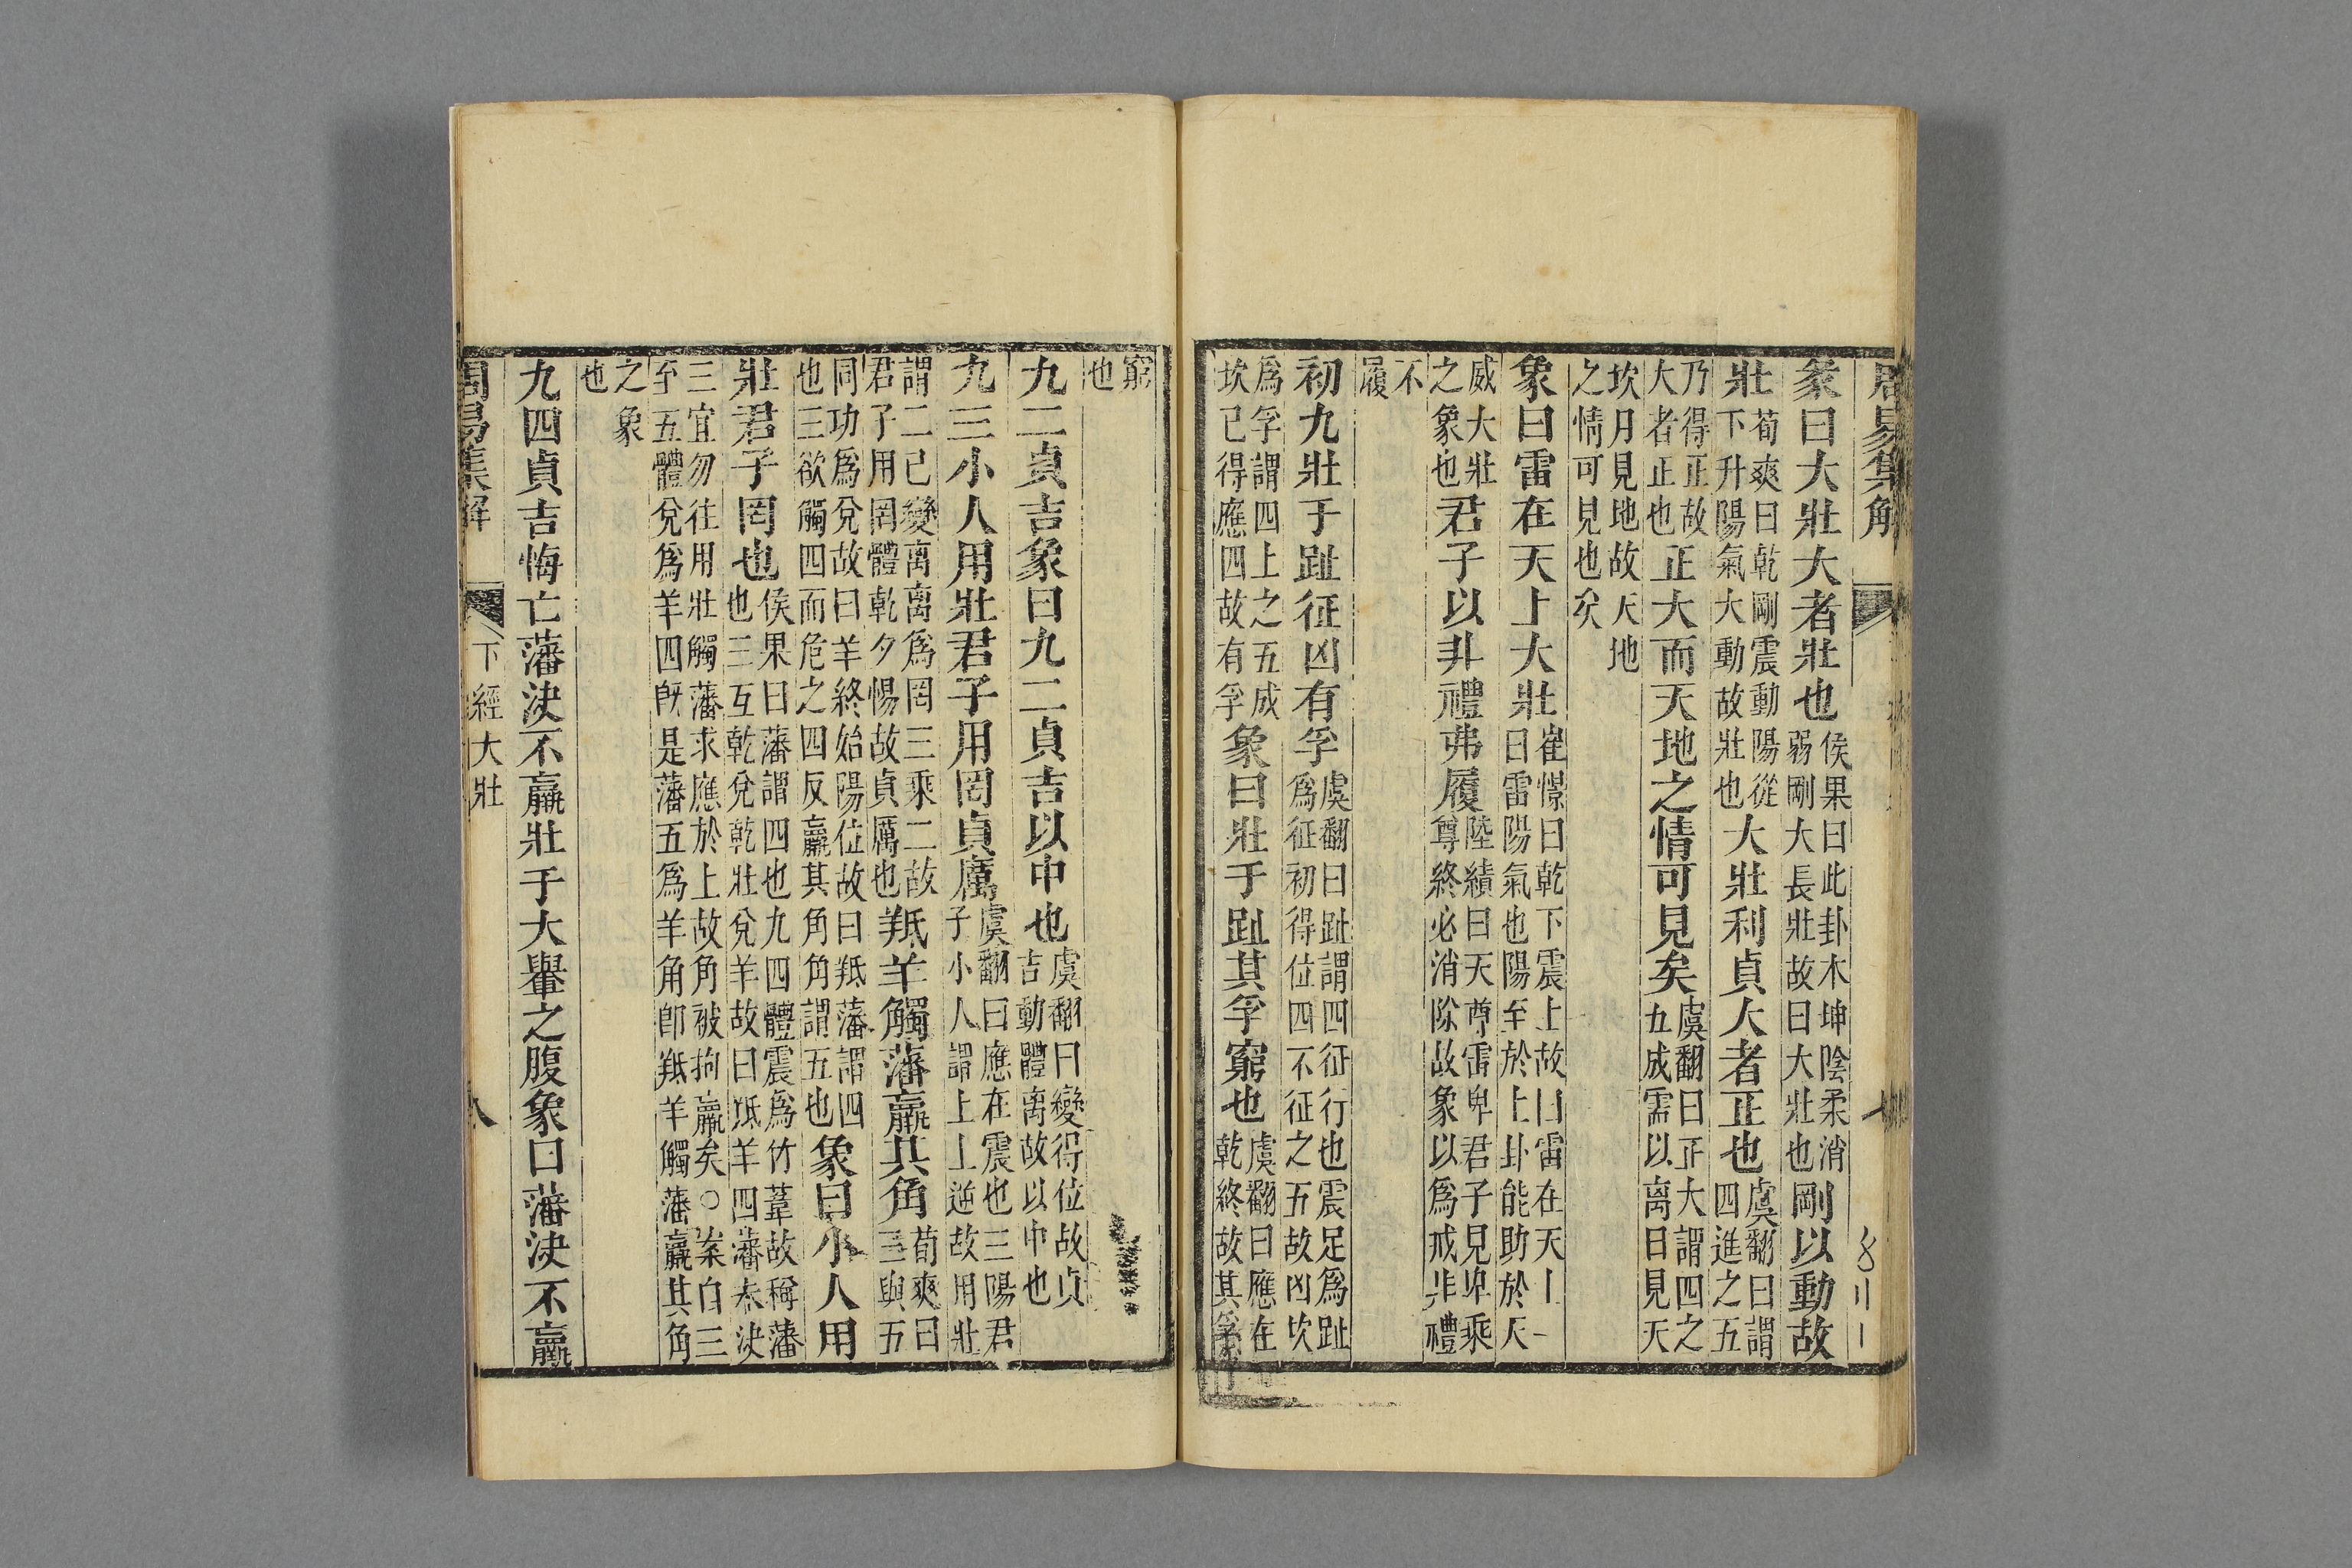 周易集解
彖曰大壯大者壯也侯果曰此卦本坤陰柔消弱剛大長壯故曰大壯也剛以動故
壯荀爽曰乾剛震動陽從下升陽氣大動故壯也大壯利貞大者正也虞翻曰謂四進之五
乃得正故大者正也正大而天地之情可見矣虞翻曰正大謂四之五成需以离日見天
坎月見地故天地之情可見也矣
象曰雷在天上大壯崔憬曰乾下震上故曰雷在天上一曰雷陽氣也陽至於上卦能助於天
威大壯之象也君子以非禮弗履陸績曰天尊雷卑君子見卑乘尊終必消除故象以爲戒非禮
不履
初九壯于趾征凶有孚虞翻曰趾謂四征行也震足爲趾爲征初得位四不征之五故凶坎
爲孚謂四上之五成坎已得應四故有孚象曰壯于趾其孚窮也虞翻曰應在乾終故其孚
窮也
九二貞吉象曰九二貞吉以中也虞翻曰變得位故貞吉動體离故以中也
九三小人用壯君子用罔貞厲虞翻曰應在震也三陽君子小人謂上上逆故用壯
謂二已變离离爲罔三乘二故君子用罔體乾夕惕故貞厲也羝羊觸藩羸其角荀爽曰三與五
同功爲兌故曰羊終始陽位故曰羝藩謂四也三欲觸四而危之四反羸其角角謂五也象曰小人用
壯君子罔也侯果曰藩謂四也九四體震爲竹葦故稱藩也三互乾兌乾壯兌羊故曰羝羊四藩未決
三宜勿往用壯觸藩求應於上故角被拘羸矣○案自三至五體兌爲羊四既是藩五爲羊角即羝羊觸藩羸其角
之象也
九四貞吉悔亡藩決不羸壯于大轝之腹象曰藩決不羸
周易集解 下經 大壯 八